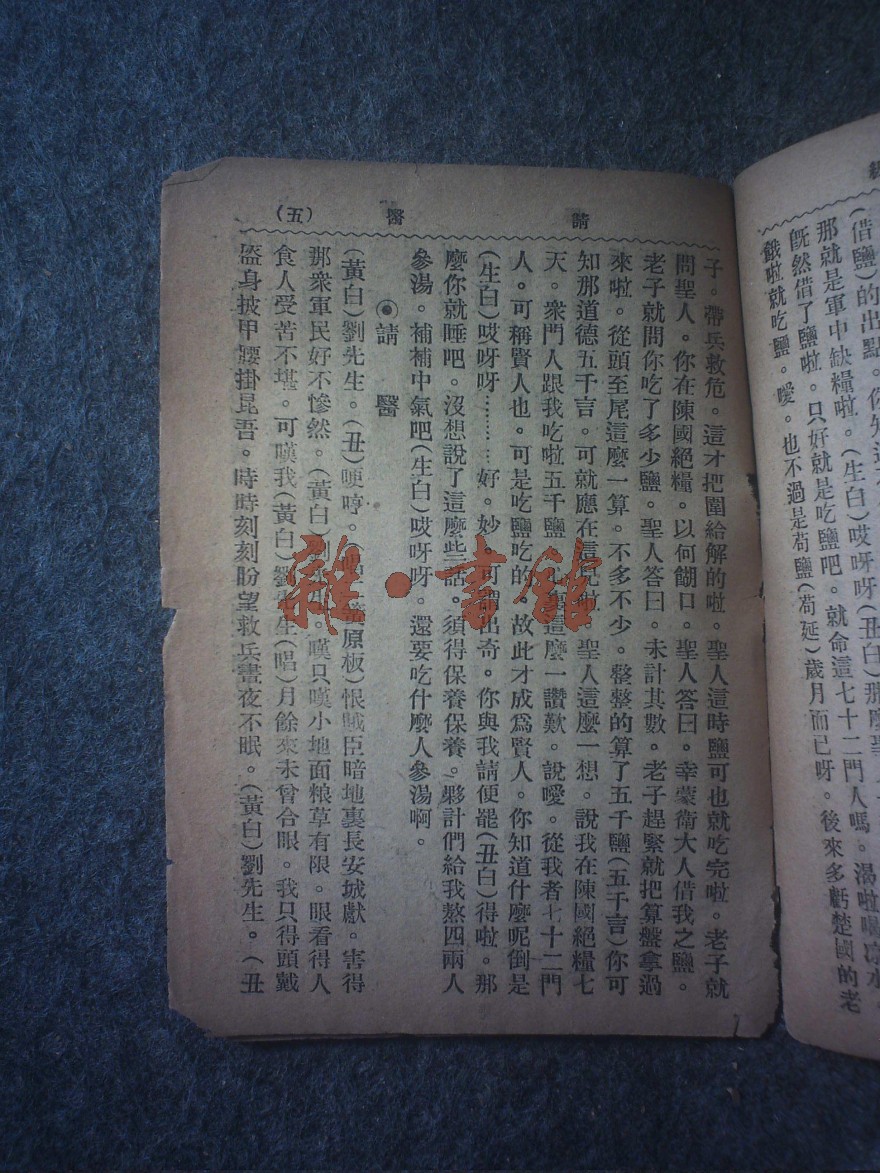 (借鹽)的出點。你知道
那就是軍中缺糧啦。(生白)哎呀呀(丑白)那麼聖
既然借了鹽啦。只好就是吃鹽吧。就命這七十二門人嗎。渴啦喝凉水。
餓啦就吃鹽。噯。也不過是苟鹽(苟延)歲月而已呀。後來多虧楚國的老
請醫 (五)
子。帶兵救危。這才把圍給解的啦。聖人這時鹽可也就吃完啦。老子就
問聖人。你在陳國絕糧。以何餬口。聖人答曰。幸蒙衛大人借我之鹽。
老子就問你吃了多少鹽。聖人答曰。未計其數。老子趕緊就把算盤拿過
來啦。從頭至尾這麼一算。不多不少。整整的算了五千鹽(五千言)你可
知那道德五千言。可就應在這兒啦。聖人這麼一想。說我在陳國絕糧七
天。衆門人跟我吃啦五千鹽。裏這麼一讚歎。說噯。從我者七十二門
人。可稱賢人也。可是吃鹽吃的。故此才成爲賢人。你知道什麼呢倒是
(生白)哎呀呀………好。妙。可謂出奇。你與我請便罷(丑白)得啦。那
麼你就睡吧。沒想說了這麼些話。須得保養保養。夥計們給我熬四兩人
參湯。補補中氣吧(生白)哎呀呀。還要吃什麼人參湯啊。
◉請醫
(黃白)劉先生。(丑)哽哼。(唱原板)恨賊臣暗地裏長安城獻。害得
那衆軍民好不慘然。(黃白)劉先生。嘆只嘆小地面粮草有限。眼看得人
食人受苦不堪。可嘆我(黃白)劉先生(唱)月餘來未曾合眼。我只得頭戴
盔身披甲腰掛昆吾。時時刻刻盼望救兵晝夜不眠。(黃白)劉先生。(丑
雜·書館